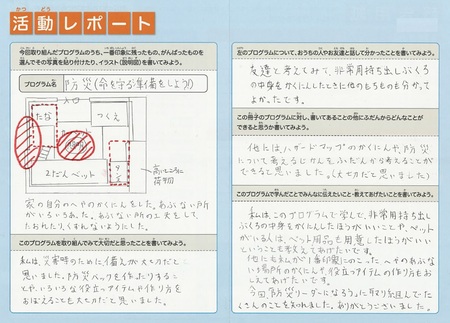 かつ どう
活動レポート
今回取り組んだプログラムのうち、一番印象に残ったもの、がんばったものを
選んでその写真を貼り付けたり、イラスト(説明図)を書いてみよう。
プログラム名 防災(命を守る準備をしよう!)
入口
たな
つくえ
2だんベット
高いところに
荷物
家の自分のへやのかくにんをした。あぶない所が
いろいろあった。あぶない所の工夫をして
たおれたりくずれないようにした。
このプログラムを取り組んでみて大切だと思ったことを書いてみよう。
私は、災害時のために備えが大切だと
思いました。防災バックを作ったりするこ
とや、いろいろな役立つアイテムの作り方を
おぼえることも大切だと思いました。
左のプログラムについて、おうちの人やお友達と話して分かったことを書いてみよう。
友達と考えてみて、非常用持ち出しぶくろ
の中身をかくにんしたときに他のものも分かって
よかったです。
この冊子のプログラムに対し、書いてあることの他にふだんからどんなことが
できると思うか書いてみよう。
他には、ハザードマップのかくにんや、防災
について考えるじかんをふだんから考えることが
できると思いました。(大切だと思いました)
このプログラムで学んだことでみんなに伝えたいこと・教えてあげたいことを書いてみよう。
私は、このプログラムで学んで、非常用持ち出し
ぶくろの中身をかくにんしたほうがいいことや、ペット
がいる人は、ペット用品も用意したほうがいい
ということを教えてあげたいです。
他にも私が1番印象にのこった、へやのあぶな
い場所のかくにんや、役立つアイテムの作り方をお
しえてあげたいです。
今回、防災リーダーになろう。に取り組んでた
くさんのことを知れました。ありがとうございました。